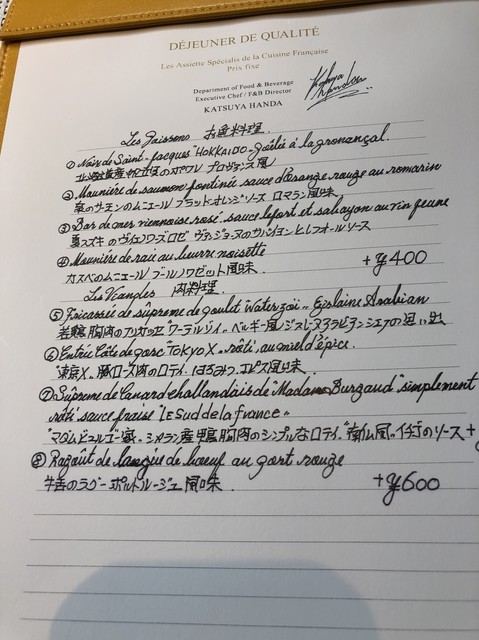 DÉJEUNER DE QUALITÉ
Les Assiette Spécialis de la Cuisine Française
Prix fixe
Department of Food & Beverage
Executive Chef / F&B Director
KATSUYA HANDA
Les Poissons お魚料理
① Noix de Saint-Jacques "HOKKAIDO" à la
北海道産帆立貝のポワレ プロヴァンス風
② Meunière de saumon sauce d'orange rouge au romarin
のサーモンのムニエール ブラッドオレンジソース ロマラン風味
③ Bar de mer viennoise rosé sauce et sabayon au vin jeune
夏スズキのヴィエノワーズロゼ ヴァンジョーヌのサバイヨンとレフォールソース
④ Meunière de raie au beurre noisette
カスベのムニエール ブールノワゼット風味
+¥400
Les Viandes 肉料理
⑤ Fricassée de suprême de poulet Waterzoï Gislaine Arabian
若鶏胸肉のフリカッセ ワーテルゾイ ベルギー風 ジスレーヌアラビアンシェフの思い出
⑥ Entrée Côte de porc "TOKYO X" rôti, au miel d'épice.
"東京X" 豚ロース肉のロティ はちみつ、エピス風味
⑦ Suprême de Canard challandais de "Madame Burgaud" simplement
rôti sauce fraise "LE Sud de la France"
"マダムビュルゴー家" シャラン産鴨胸肉のシンプルなロティ "南仏風" イチゴのソース +
⑧ Ragoût de langue de bœuf au port rouge
牛舌のラグー ポルトルージュ風味
+¥600